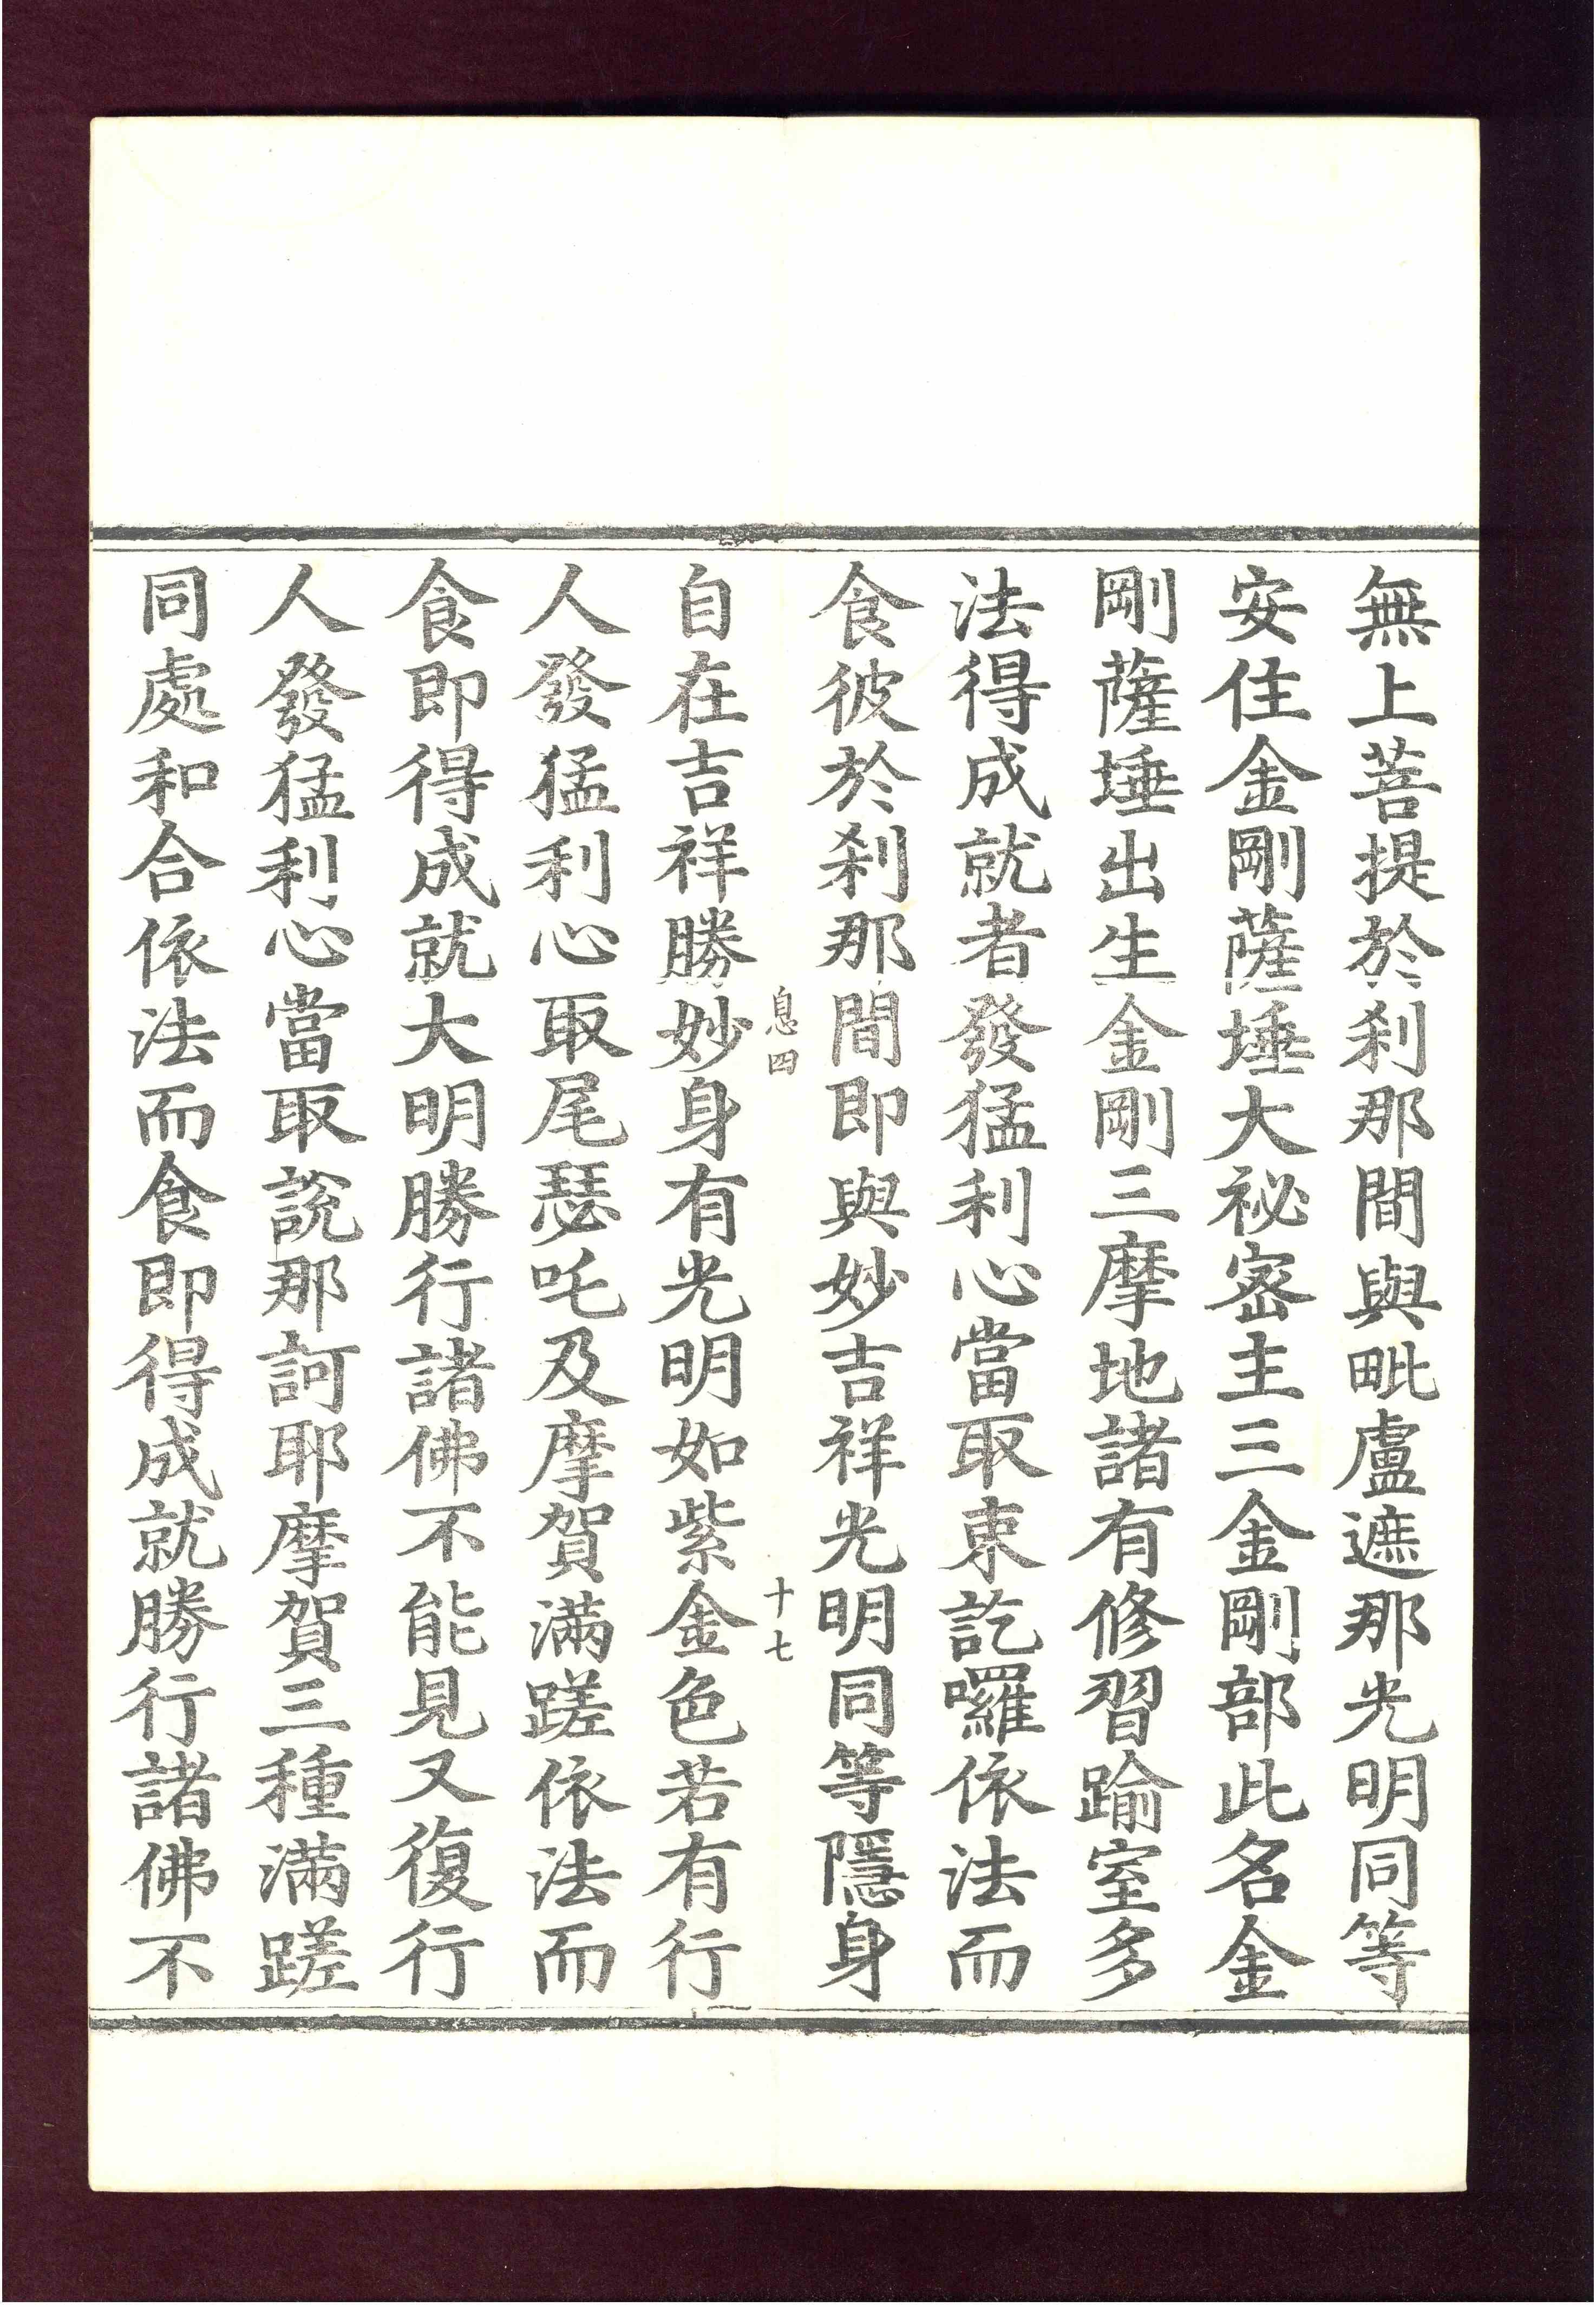 無上菩提於刹那間與毗盧遮那光明同等
安住金剛薩埵大祕密主三金剛部此名金
剛薩埵出生金剛三摩地諸有修習踰室多
法得成就者發猛利心當取束訖囉依法而
食彼於刹那間即與妙吉祥光明同等隱身
息四
十七
自在吉祥勝妙身有光明如紫金色若有行
人發猛利心取尾瑟吒及摩賀滿蹉依法而
食即得成就大明勝行諸佛不能見又復行
人發猛利心當取說那訶耶摩賀三種滿蹉
同處和合依法而食即得成就勝行諸佛不